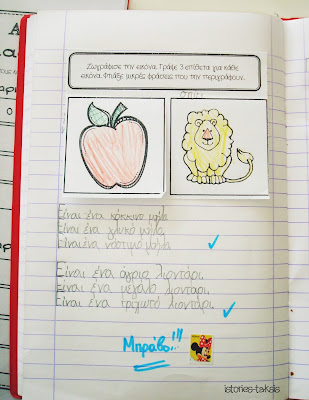 Ζωγράφισε την εικόνα. Γράψε 3 επίθετα για κάθε
εικόνα. Φτιάξε μικρές φράσεις που την περιγράφουν.
Είναι ένα κόκκινο μήλο.
Είναι ένα γλυκό μήλο.
Είναι ένα νόστιμο μήλο.
Είναι ένα άγριο λιοντάρι.
Είναι ένα μεγάλο λιοντάρι.
Είναι ένα τριχωτό λιοντάρι.
Μπράβο!!!
istories-taksis